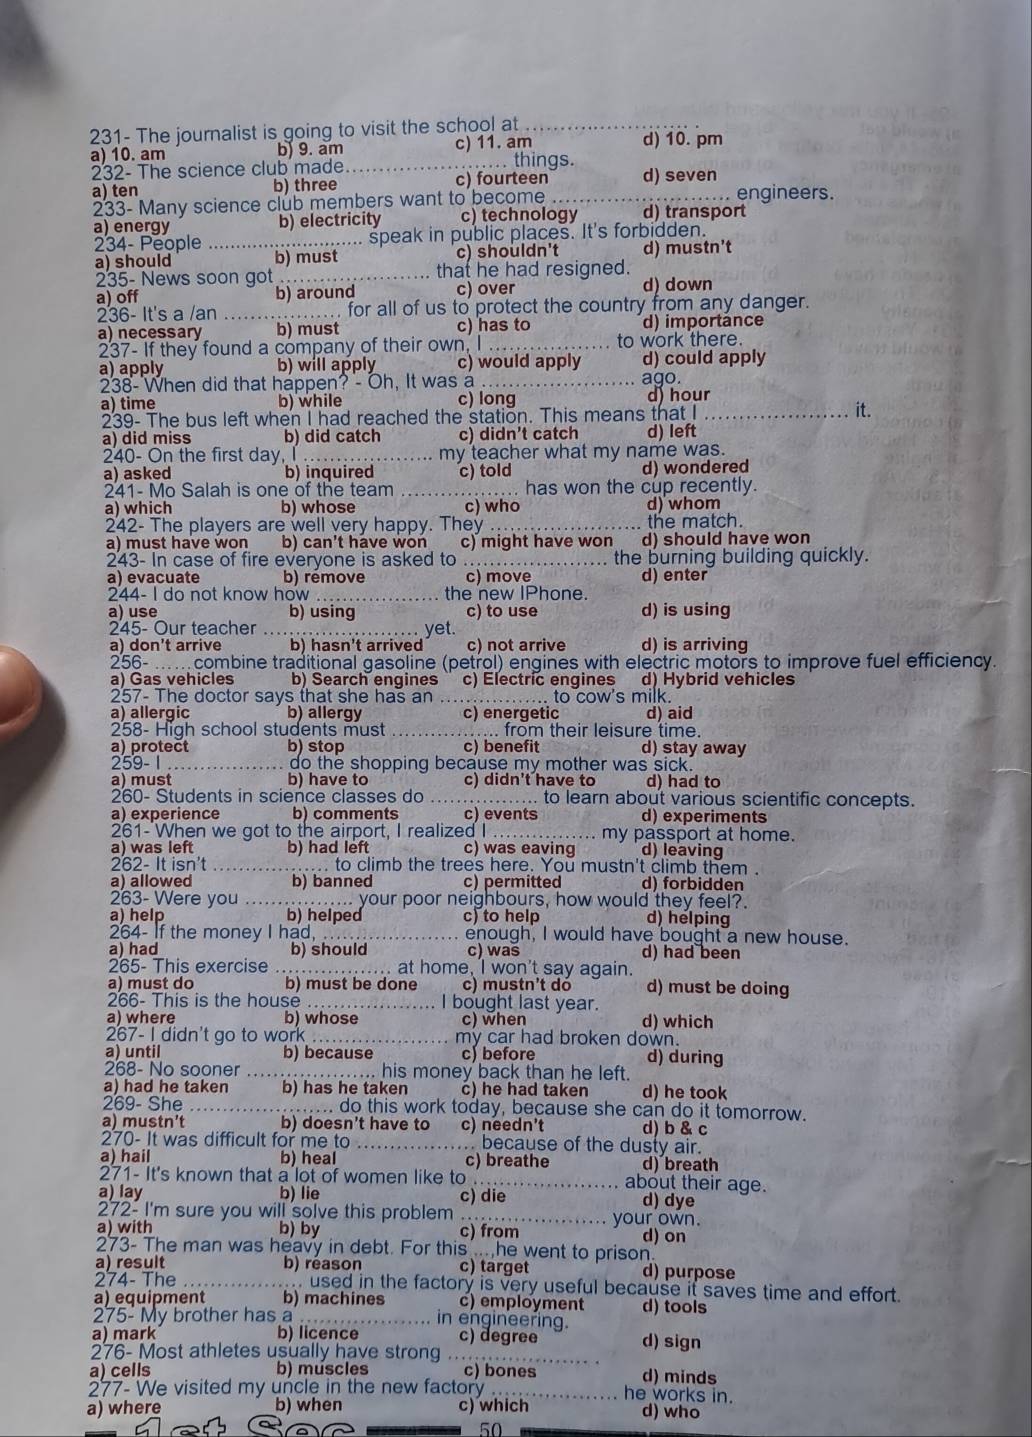 231- The journalist is going to visit the school at ........................ .
a) 10. am b) 9. am c) 11. am d) 10. pm
232- The science club made........................ things.
a) ten b) three c) fourteen d) seven
233- Many science club members want to become ........................ engineers.
a) energy b) electricity c) technology d) transport
234- People ........................ speak in public places. It's forbidden.
a) should b) must c) shouldn't d) mustn't
235- News soon got ........................ that he had resigned.
a) off b) around c) over d) down
236- It's a /an ................. for all of us to protect the country from any danger.
a) necessary b) must c) has to d) importance
237- If they found a company of their own, I ................. to work there.
a) apply b) will apply c) would apply d) could apply
238- When did that happen? - Oh, It was a ........................ ago.
a) time b) while c) long d) hour
239- The bus left when I had reached the station. This means that I ...................... it.
a) did miss b) did catch c) didn't catch d) left
240- On the first day, I .................... my teacher what my name was.
a) asked b) inquired c) told d) wondered
241- Mo Salah is one of the team .................. has won the cup recently.
a) which b) whose c) who d) whom
242- The players are well very happy. They ....................... the match.
a) must have won b) can't have won c) might have won d) should have won
243- In case of fire everyone is asked to ...................... the burning building quickly.
a) evacuate b) remove c) move d) enter
244- I do not know how ................... the new IPhone.
a) use b) using c) to use d) is using
245- Our teacher ........................ yet.
a) don't arrive b) hasn't arrived c) not arrive d) is arriving
256- ......combine traditional gasoline (petrol) engines with electric motors to improve fuel efficiency.
a) Gas vehicles b) Search engines c) Electric engines d) Hybrid vehicles
257- The doctor says that she has an ................. to cow's milk.
a) allergic b) allergy c) energetic d) aid
258- High school students must ................. from their leisure time.
a) protect b) stop c) benefit d) stay away
259- I .................. do the shopping because my mother was sick.
a) must b) have to c) didn't have to d) had to
260- Students in science classes do ................. to learn about various scientific concepts.
a) experience b) comments c) events d) experiments
261- When we got to the airport, I realized I ................ my passport at home.
a) was left b) had left c) was eaving d) leaving
262- It isn't .................. to climb the trees here. You mustn't climb them .
a) allowed b) banned c) permitted d) forbidden
263- Were you ................. your poor neighbours, how would they feel?.
a) help b) helped c) to help d) helping
264- If the money I had, ..................... enough, I would have bought a new house.
a) had b) should c) was d) had been
265- This exercise .................. at home, I won't say again.
a) must do b) must be done c) mustn't do d) must be doing
266- This is the house .................... I bought last year.
a) where b) whose c) when d) which
267- I didn't go to work ..................... my car had broken down.
a) until b) because c) before d) during
268- No sooner .................... his money back than he left.
a) had he taken b) has he taken c) he had taken d) he took
269- She ...................... do this work today, because she can do it tomorrow.
a) mustn't b) doesn't have to c) needn't d) b & c
270- It was difficult for me to .................. because of the dusty air.
a) hail b) heal c) breathe d) breath
271- It's known that a lot of women like to ....................... about their age.
a) lay b) lie c) die d) dye
272- I'm sure you will solve this problem ....................... your own.
a) with b) by c) from d) on
273- The man was heavy in debt. For this ....,he went to prison.
a) result b) reason c) target d) purpose
274- The .................. used in the factory is very useful because it saves time and effort.
a) equipment b) machines c) employment d) tools
275- My brother has a .................... in engineering.
a) mark b) licence c) degree d) sign
276- Most athletes usually have strong ....................... .
a) cells b) muscles c) bones d) minds
277- We visited my uncle in the new factory ................... he works in.
a) where b) when c) which d) who
1st Sec 50